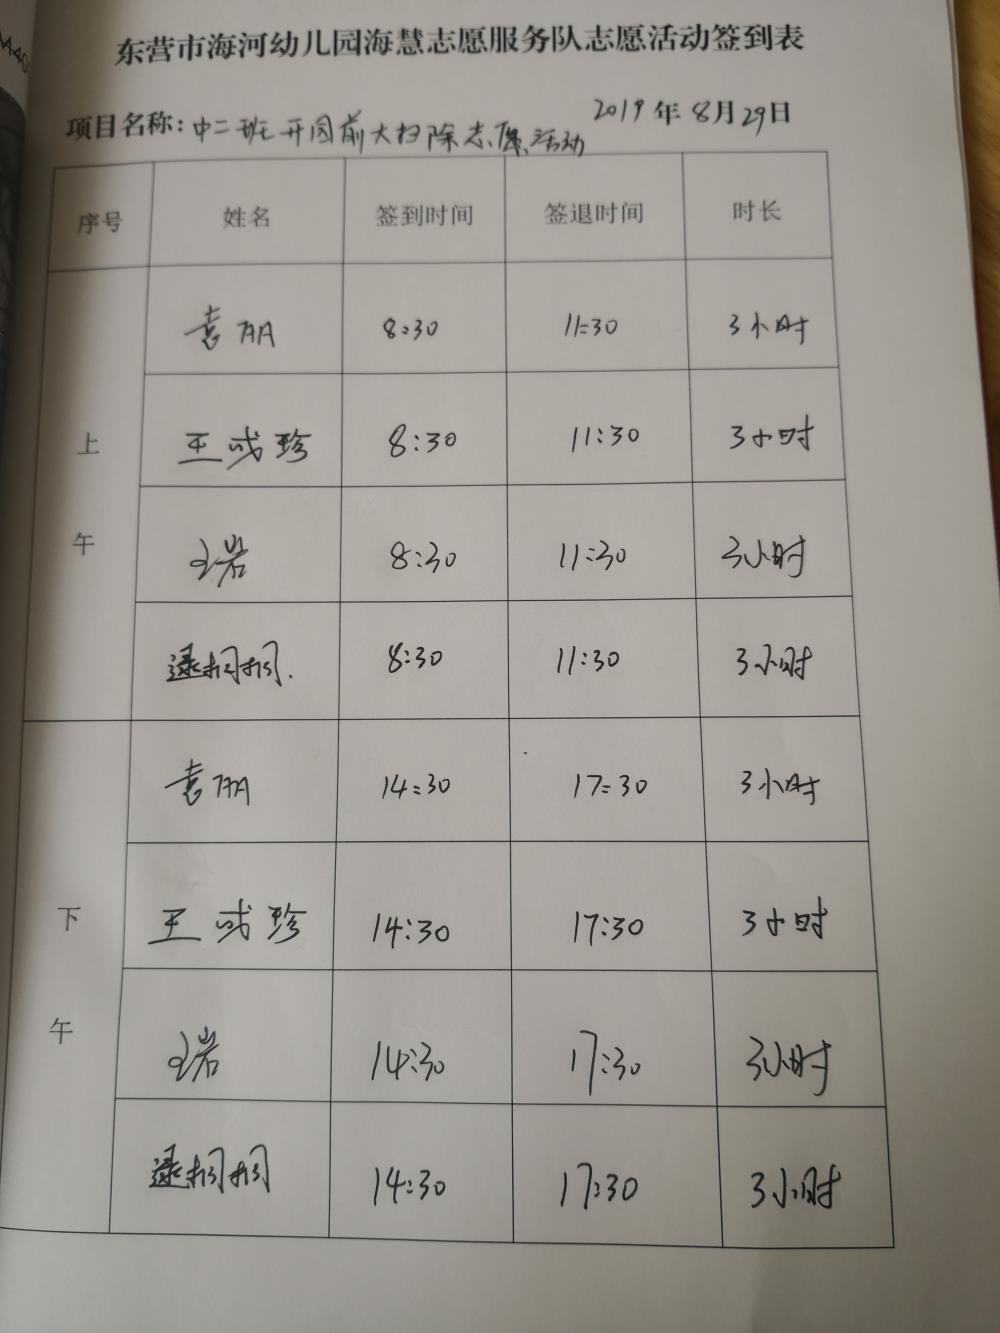 东营市海河幼儿园海慧志愿服务队志愿活动签到表
项目名称：中二班开园前大扫除志愿活动 2019年8月29日
序号 姓名 签到时间 签退时间 时长
上午
袁朋 8:30 11:30 3小时
王成珍 8:30 11:30 3小时
王岩 8:30 11:30 3小时
逯桐桐. 8:30 11:30 3小时
下午
袁朋 14:30 17:30 3小时
王成珍 14:30 17:30 3小时
王岩 14:30 17:30 3小时
逯桐桐 14:30 17:30 3小时